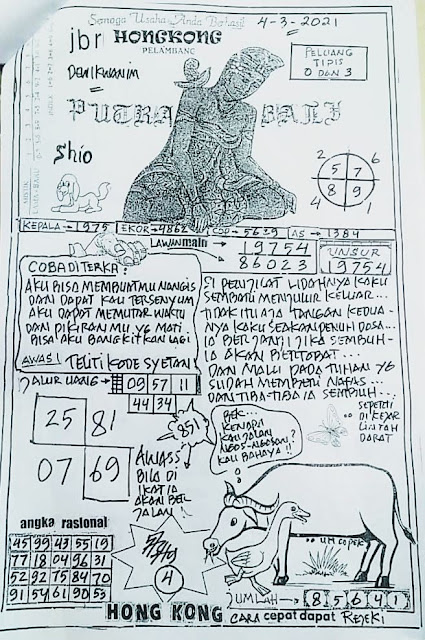 Semoga Usaha Anda Berhasil
4-3-2021
jbr HONGKONG
PELAMBANG
PELUANG
TIPIS
0 DAN 3
Dewikwanim
PUTRA BALI
Shio
2 6
5 7
8 9
4 1
KEPALA → 1975 EKOR → 4862 COP → 5629 AS → 1384
LAWAN main
19754
86023
UNSUR
19754
COBA DITERKA:
AKU BISA MEMBUATMU NANGIS
DAN DAPAT KAU TERSENYUM
AKU DAPAT MEMUTAR WAKTU
DAN PIKIRAN MU YG MATI
BISA AKU BANGKITKAN LAGI
AWAS! TELITI KODE SYETAN
SI PENJILAT LIDAHNYA KAKU
SEMBARI MENJULUR KELUAR...
TIDAK ITU AJA TANGAN KEDUA-
NYA KAKU SEAKAN PENUH DOSA...
IA BERJANJI JIKA SEMBUH
IA AKAN BERTOBAT...
DAN MALU PADA TUHAN YG
SUDAH MEMBERI NAFAS...
DAN TIBA-TIBA IA SEMBUH...
SEPERTI
DI KEJAR
LINTAH
DARAT
JALUR UANG =
09 57 11
44 34
25 81
07 69
85!
AWASS
BILA DI
IKAT IA
AKAN BER
JALAN!!
BEK...
KENAPA
KAU JALAN
NGOS-NGOSAN?
KAU BAHAYA!!
UH COPEK
angka rasional
45 99 43 55 19
77 18 04 96 31
52 92 75 84 70
91 54 61 90 53
4
JUMLAH → 8 5 6 4 1
HONG KONG CARA cepat dapat REJEKI